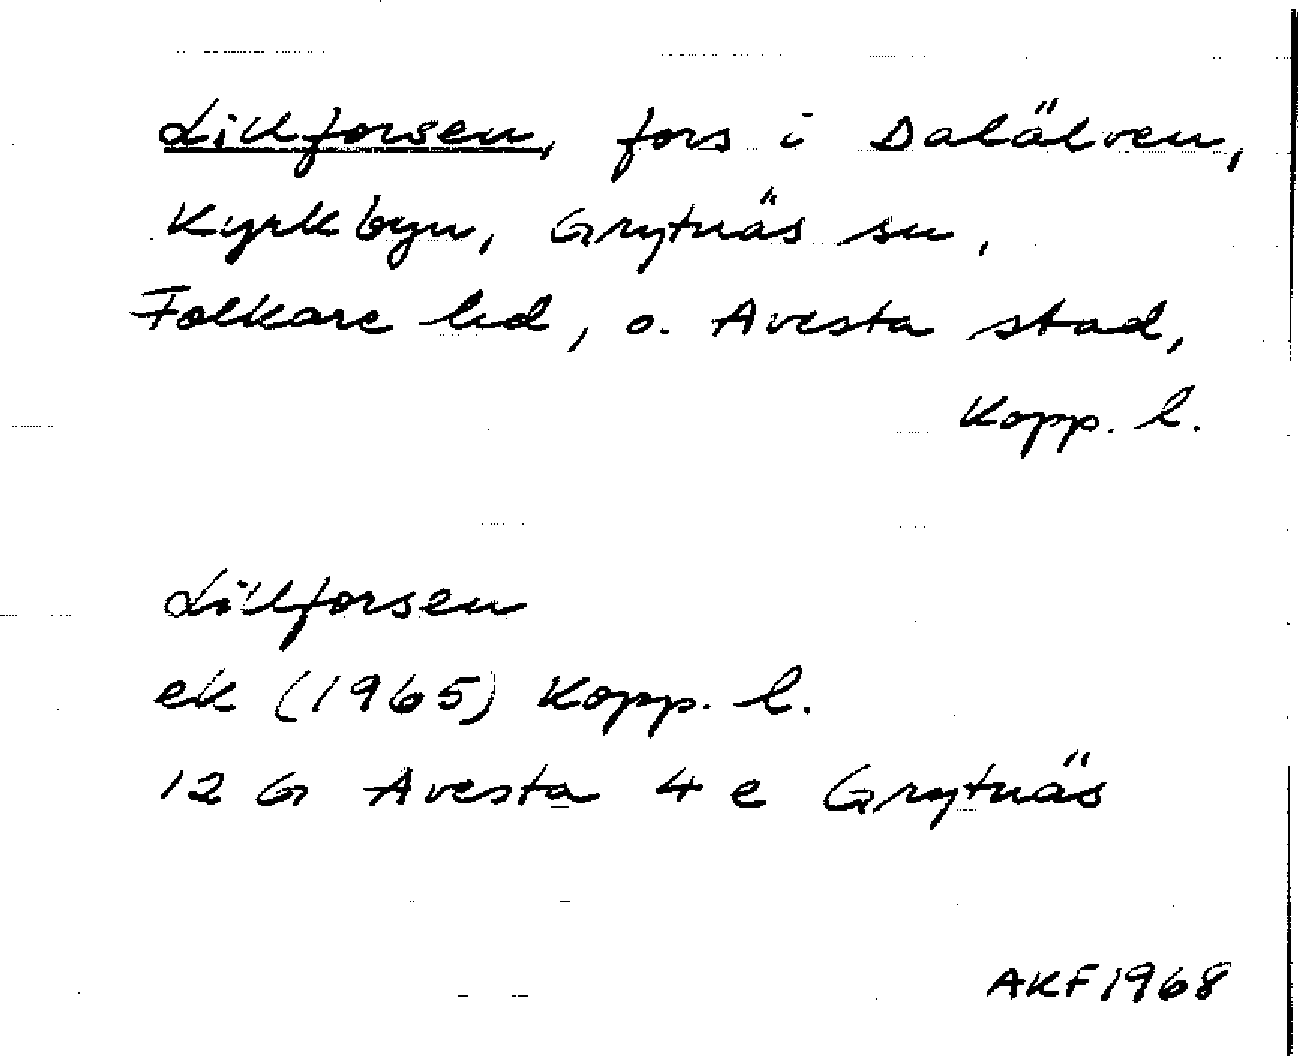 Lillforsen, fors i Dalälven,
Kyrkbyn, Grytnäs sn,
Folkare hd, o. Avesta stad,
Kopp. l.
Lillforsen
ek (1965) Kopp. l.
12 G Avesta 4 e Grytnäs
AKF 1968